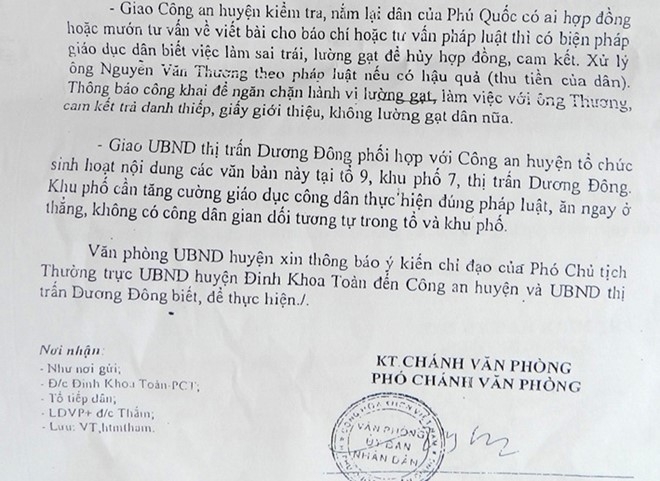 - Giao Công an huyện kiểm tra, nắm lại dân của Phú Quốc có ai hợp đồng
hoặc mướn tư vấn về viết bài cho báo chí hoặc tư vấn pháp luật thì có biện pháp
giáo dục dân biết việc làm sai trái, lường gạt để hủy hợp đồng, cam kết. Xử lý
ông Nguyễn Văn Thương theo pháp luật nếu có hậu quả (thu tiền của dân).
Thông báo công khai để ngăn chặn hành vi lường gạt, làm việc với ông Thương,
cam kết trả danh thiếp, giấy giới thiệu, không lường gạt dân nữa.
- Giao UBND thị trấn Dương Đông phối hợp với Công an huyện tổ chức
sinh hoạt nội dung các văn bản này tại tổ 9, khu phố 7, thị trấn Dương Đông.
Khu phố cần tăng cường giáo dục công dân thực hiện đúng pháp luật, ăn ngay ở
thẳng, không có công dân gian dối tương tự trong tổ và khu phố.
Văn phòng UBND huyện xin thông báo ý kiến chỉ đạo của Phó Chủ tịch
Thường trực UBND huyện Đinh Khoa Toàn đến Công an huyện và UBND thị
trấn Dương Đông biết, để thực hiện./.
Nơi nhận:
- Như nơi gửi;
- Đ/c Đinh Khoa Toàn-PCT;
- Tổ tiếp dân;
- LDVP+ đ/c Thắm;
- Lưu: VT,htmtham.
KT CHÁNH VĂN PHÒNG
PHÓ CHÁNH VĂN PHÒNG
VĂN PHÒNG
ỦY BAN
NHÂN DÂN